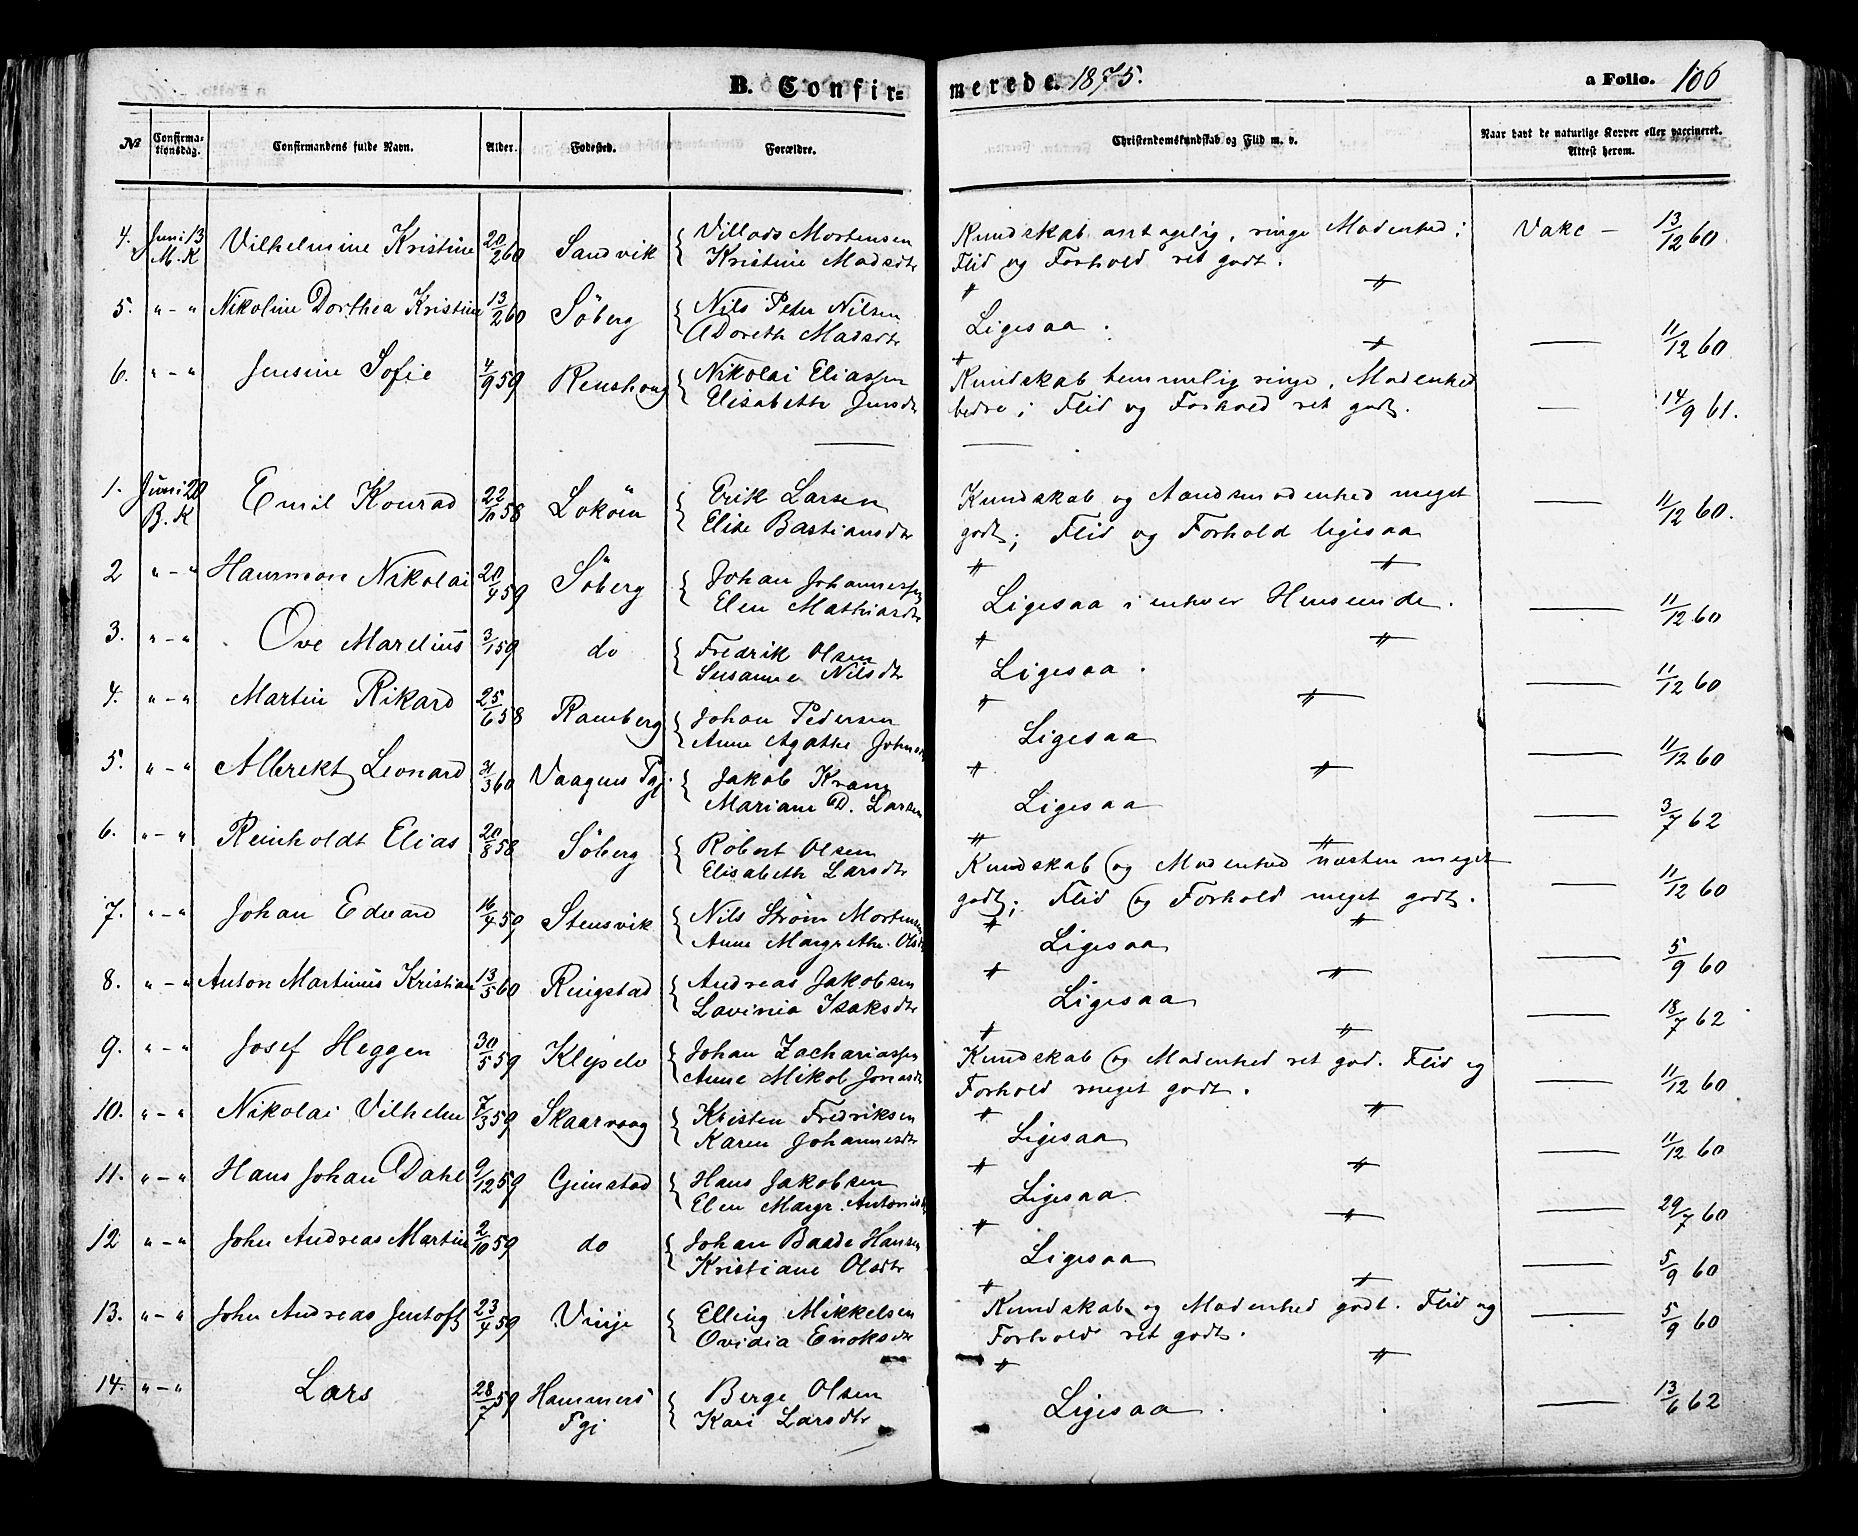 B. Confir=
merede. 1875.
a Folio. 106
No
Confirma=
tionsdag.
Confirmandens fulde Navn.
Alder.
Fødested.
Forældre.
Christendomskundskab og Flid m. v.
Naar havt de naturlige Kopper eller vaccineret.
Attest herom.
4. Juni 13 M.K Vilhelmine Kristine 20/2 60 Sandvik { Villads Mortensen
Kristine Madsdtr
Kundskab antagelig, ringe Modenhed;
Flid og Forhold ret godt.
Vakc — 13/12 60
5. " – " Nikoline Dorthea Kristine 13/2 60 Søberg { Nils Peter Nilsen
Doreth Madsdtr
Ligesaa.
— 11/12 60
6. " – " Jensine Sofie 4/9 59 { Nikolai Eliassen
Elisabeth Jensdtr
Kundskab temmelig ringe, Modenhed
bedre; Flid og Forhold ret godt.
— 14/9 61.
1. Juni 20 B.K Emil Konrad 22/10 58 { Erik Larsen
Elise Bastiansdtr
Kundskab og Aandsmodenhed meget
godt; Flid og Forhold ligesaa
— 11/12 60.
2 " – " Nikolai 20/4 59 Søberg { Johan Johannessen
Elen Mathiasdtr
Ligesaa i enhver Henseende.
— 11/12 60
3. " – " Ove Marelius 3/1 59 do { Fredrik Olsen
Susanne Nilsdtr
Ligesaa.
— 11/12 60
4. " – " Martin Rikard 25/6 58 Ramberg { Johan Pedersen
Anne Agathe
Ligesaa
— 11/12 60
5. " – " Albrekt Leonard 31/3 60 Vaagens Pgj. { Jakob
Mariane D. Larsen
Ligesaa
— 3/7 62
6. " – " Reinholdt Elias 20/8 58 Søberg { Robert Olsen
Elisabeth Larsdtr
Kundskab og Modenhed næsten meget
godt; Flid og Forhold meget godt.
— 11/12 60
7. " – " Johan Edvard 16/4 59 Stensvik { Nils Strøm Mortensen
Anne Margrethe Olsdtr
Ligesaa
— 5/9 60
8. " – " Anton Martinus Kristian 13/5 60 Ringstad { Andreas Jakobsen
Lavinia Isaksdtr
Ligesaa
— 18/7 62
9. " – " Josef Heggen 30/5 59 { Johan Zachariassen
Anne Mikol Jonasdtr
Kundskab og Modenhed ret god. Flid og
Forhold meget godt.
— 11/12 60
10. " – " Nikolai Vilhelm 7/3 59 Skaarvaag { Kristen Fredriksen
Karen Johannesdtr
Ligesaa
— 11/12 60
11. " – " Hans Johan Dahl 9/12 59 Gimstad { Hans Jakobsen
Elen Margr. Antonisdtr
Ligesaa
— 29/7 60
12 " – " John Andreas Martin 2/10 59 do { Johan Baade Hansen
Kristiane Olsdtr
Ligesaa
— 5/9 60
13. " – " John Andreas Jentoft 23/4 59 Vinje { Elling Mikkelsen
Ovidia Enoksdtr
Kundskab og Modenhed godt. Flid og
Forhold ret godt.
— 5/9 60
14. " – " Lars 28/7 59 Hammers Pgj { Berge Olsen
Kari Larsdtr
Ligesaa.
— 13/6 62